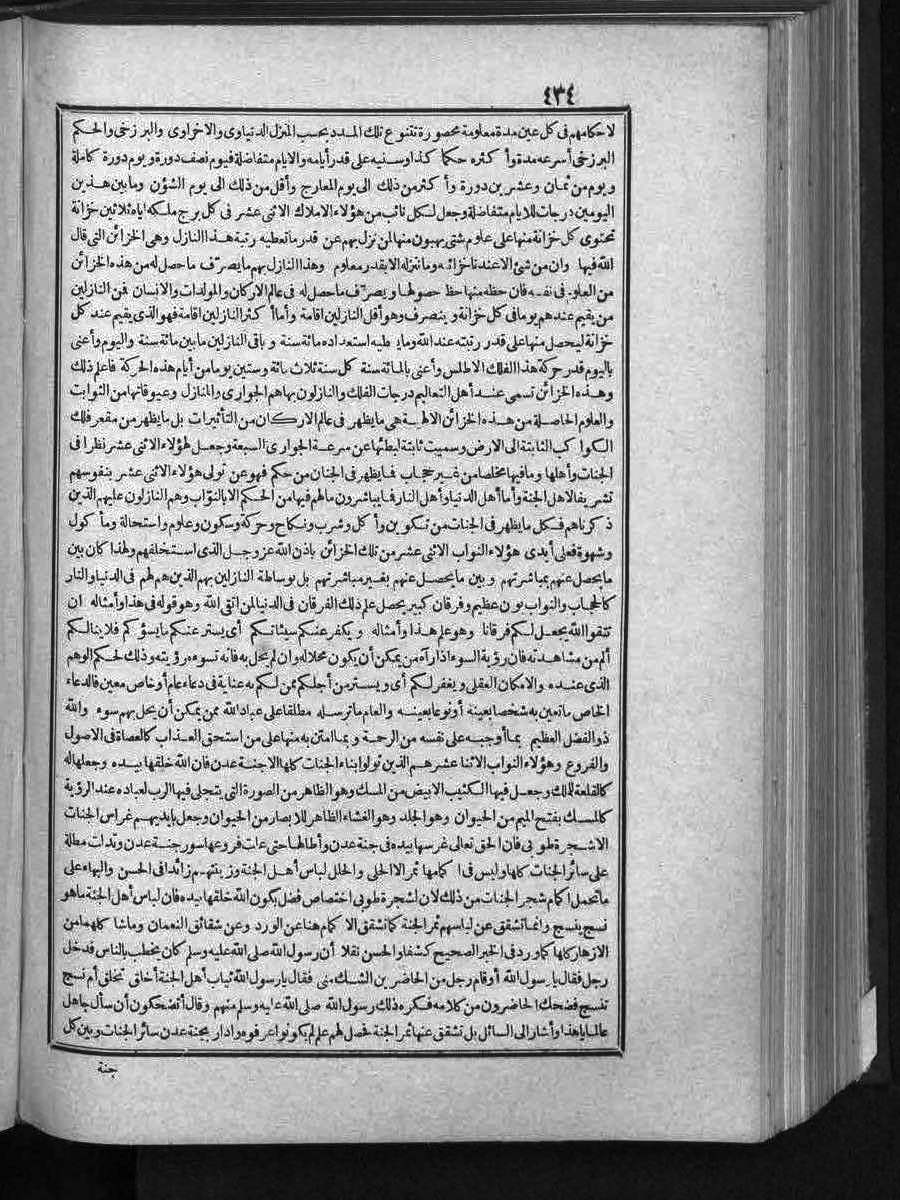 ٤٣٤
لاحكامهم فى كل عين مدة معلومة محصورة تتنوع تلك المدد بحسب المنزل الدنياوى والاخراوى والبرزخى والحكم
البرزخى أسرعه مدة وأكثره حكما كذا وسنيه على قدر أيامه والايام متفاضلة فيوم نصف دورة ويوم دورة كاملة
ويوم من ثمان وعشرين دورة وأكثر من ذلك الى يوم المعارج وأقل من ذلك الى يوم الشؤن وما بين هذين
اليومين درجات للايام متفاضلة وجعل لكل نائب من هؤلاء الاملاك الاثنى عشر فى كل برج ملكه اياه ثلاثين خزانة
تحتوى كل خزانة منها على علوم شتى يهبون منها لمن نزل بهم عن قدر ما تعطيه رتبة هذا النازل وهى الخزائن التى قال
الله فيها وان من شئ الا عندنا خزائنه وما ننزله الا بقدر معلوم وهذا النازل بهم ما يصرّف ما حصل له من هذه الخزائن
من العلوم فى نفسه فان حظه منها حظ حصولها ويصرّف ما حصل له فى عالم الاركان والمولدات والانسان فمن النازلين
من يقيم عندهم يوما فى كل خزانة وينصرف وهو أقل النازلين اقامة وأما أكثر النازلين اقامة فهو الذى يقيم عند كل
خزانة ليحصل منها على قدر رتبته عند الله وما يعطيه استعداده مائة سنة و باقى النازلين ما بين مائة سنة واليوم وأعنى
باليوم قدر حركة هذا الفلك الاطلس وأعنى بالمائة سنة كل سنة ثلاث مائة وستين يوما من أيام هذه الحركة فاعلم ذلك
وهذه الخزائن تسمى عند أهل التعاليم درجات الفلك والنازلون بها هم الجوارى والمنازل وعيوقاتها من الثوابت
والعلوم الحاصلة من هذه الخزائن الالهية هى ما يظهر فى عالم الاركان من التأثيرات بل ما يظهر من مقعر فلك
الكواكب الثابتة الى الارض وسميت ثابتة لبطئها عن سرعة الجوارى السبعة وجعل لهؤلاء الاثنى عشر نظرا فى
الجنات وأهلها وما فيها مخلصا من غير حجاب فما يظهر فى الجنان من حكم فهو عن تولى هؤلاء الاثنى عشر بنفوسهم
تشريفا لاهل الجنة وأما أهل الدنيا وأهل النار فما يباشرون ما لهم فيها من الحكم الا بالنوّاب وهم النازلون عليهم الذين
ذكرناهم فكل ما يظهر فى الجنات من تكوين وأكل وشرب ونكاح وحركة وسكون وعلوم واستحالة ومأكول
وشهوة فعلى أيدى هؤلاء النواب الاثنى عشر من تلك الخزائن باذن الله عز وجل الذى استخلفهم ولهذا كان بين
ما يحصل عنهم بمباشرتهم وبين ما يحصل عنهم بغير مباشرتهم بل بوساطة النازلين بهم الذين هم لهم فى الدنيا والنار
كالحجاب والنواب بون عظيم وفرقان كبير يحصل علم ذلك الفرقان فى الدنيا لمن اتقى الله وهو قوله فى هذا وأمثاله ان
تتقوا الله يجعل لكم فرقانا وهو علم هذا وأمثاله ويكفر عنكم سيئاتكم أى يستر عنكم ما يسؤكم فلا ينالكم
ألم من مشاهدته فان رؤية السوء اذا رآه من يمكن أن يكون محلا له وان لم يحل به فانه تسوءه رؤيته وذلك لحكم الوهم
الذى عنده والامكان العقلى ويغفر لكم أى ويستر من أجلكم ممن لكم به عناية فى دعاء عام أو خاص معين فالدعاء
الخاص ما تعين به شخصا بعينه أو نوعا بعينه والعام ما ترسله مطلقا على عباد الله ممن يمكن أن يحل بهم سوء والله
ذو الفضل العظيم بما أوجبه على نفسه من الرحمة وبما امتن به منها على من استحق العذاب كالعصاة فى الاصول
والفروع وهؤلاء النواب الاثنا عشر هم الذين تولوا بناء الجنات كلها الاجنة عدن فان الله خلقها بيده وجعلها له
كالقلعة للملك وجعل فيها الكثيب الابيض من المسك وهو الظاهر من الصورة التى يتجلى فيها الرب لعباده عند الرؤية
كالمسك بفتح الميم من الحيوان وهو الجلد وهو الغشاء الظاهر للابصار من الحيوان وجعل بايديهم غراس الجنات
الا شجرة طوبى فان الحق تعالى غرسها بيده فى جنة عدن وأطالها حتى علت فروعها سور جنة عدن وتدلت مطلة
على سائر الجنات كلها وليس فى اكمامها ثمر الا الحلى والحلل لباس أهل الجنة وزينتهم زائدا فى الحسن والبهاء على
ما تحمل اكمام شجر الجنات من ذلك لان لشجرة طوبى اختصاص فضل بكون الله خلقها بيده فان لباس أهل الجنة ما هو
نسج ينسج وانما تشقق عن لباسهم ثمر الجنة كما تنشقق الاكمام هنا عن الورد وعن شقائق النعمان وما شا كلهما من
الازهار كلها كما ورد فى الخبر الصحيح كشفا والحسن نقلا أن رسول الله صلى الله عليه وسلم كان يخطب بالناس فدخل
رجل فقال يا رسول الله أو قام رجل من الحاضرين الشك منى فقال يا رسول الله ثياب أهل الجنة أخلق تخلق أم نسج
تنسج فضحك الحاضرون من كلامه فكره ذلك رسول الله صلى الله عليه وسلم منهم وقال أتضحكون أن سأل جاهل
عالما يا هذا وأشار الى السائل بل تشقق عنها ثمر الجنة فحصل لهم علم لم يكونوا عرفوه وادار بجنة عدن سائر الجنات وبين كل
جنة